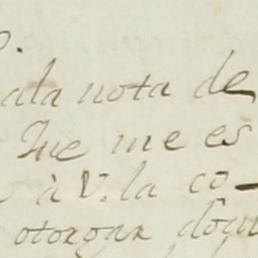 ala nota de
Que me es
à V. la co-
otorgar